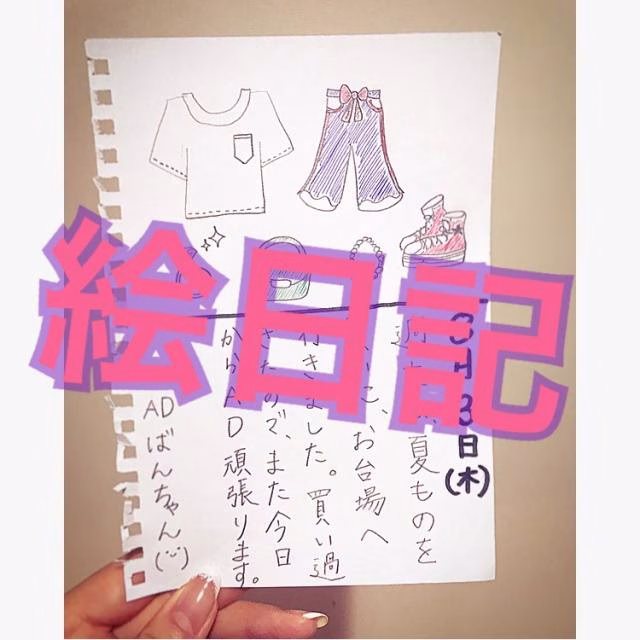 絵日記
3日(木)
夏ものを
いに、お台場へ
行きました。買い過
ぎたので、また今日
からAD頑張ります。
ADばんちゃん